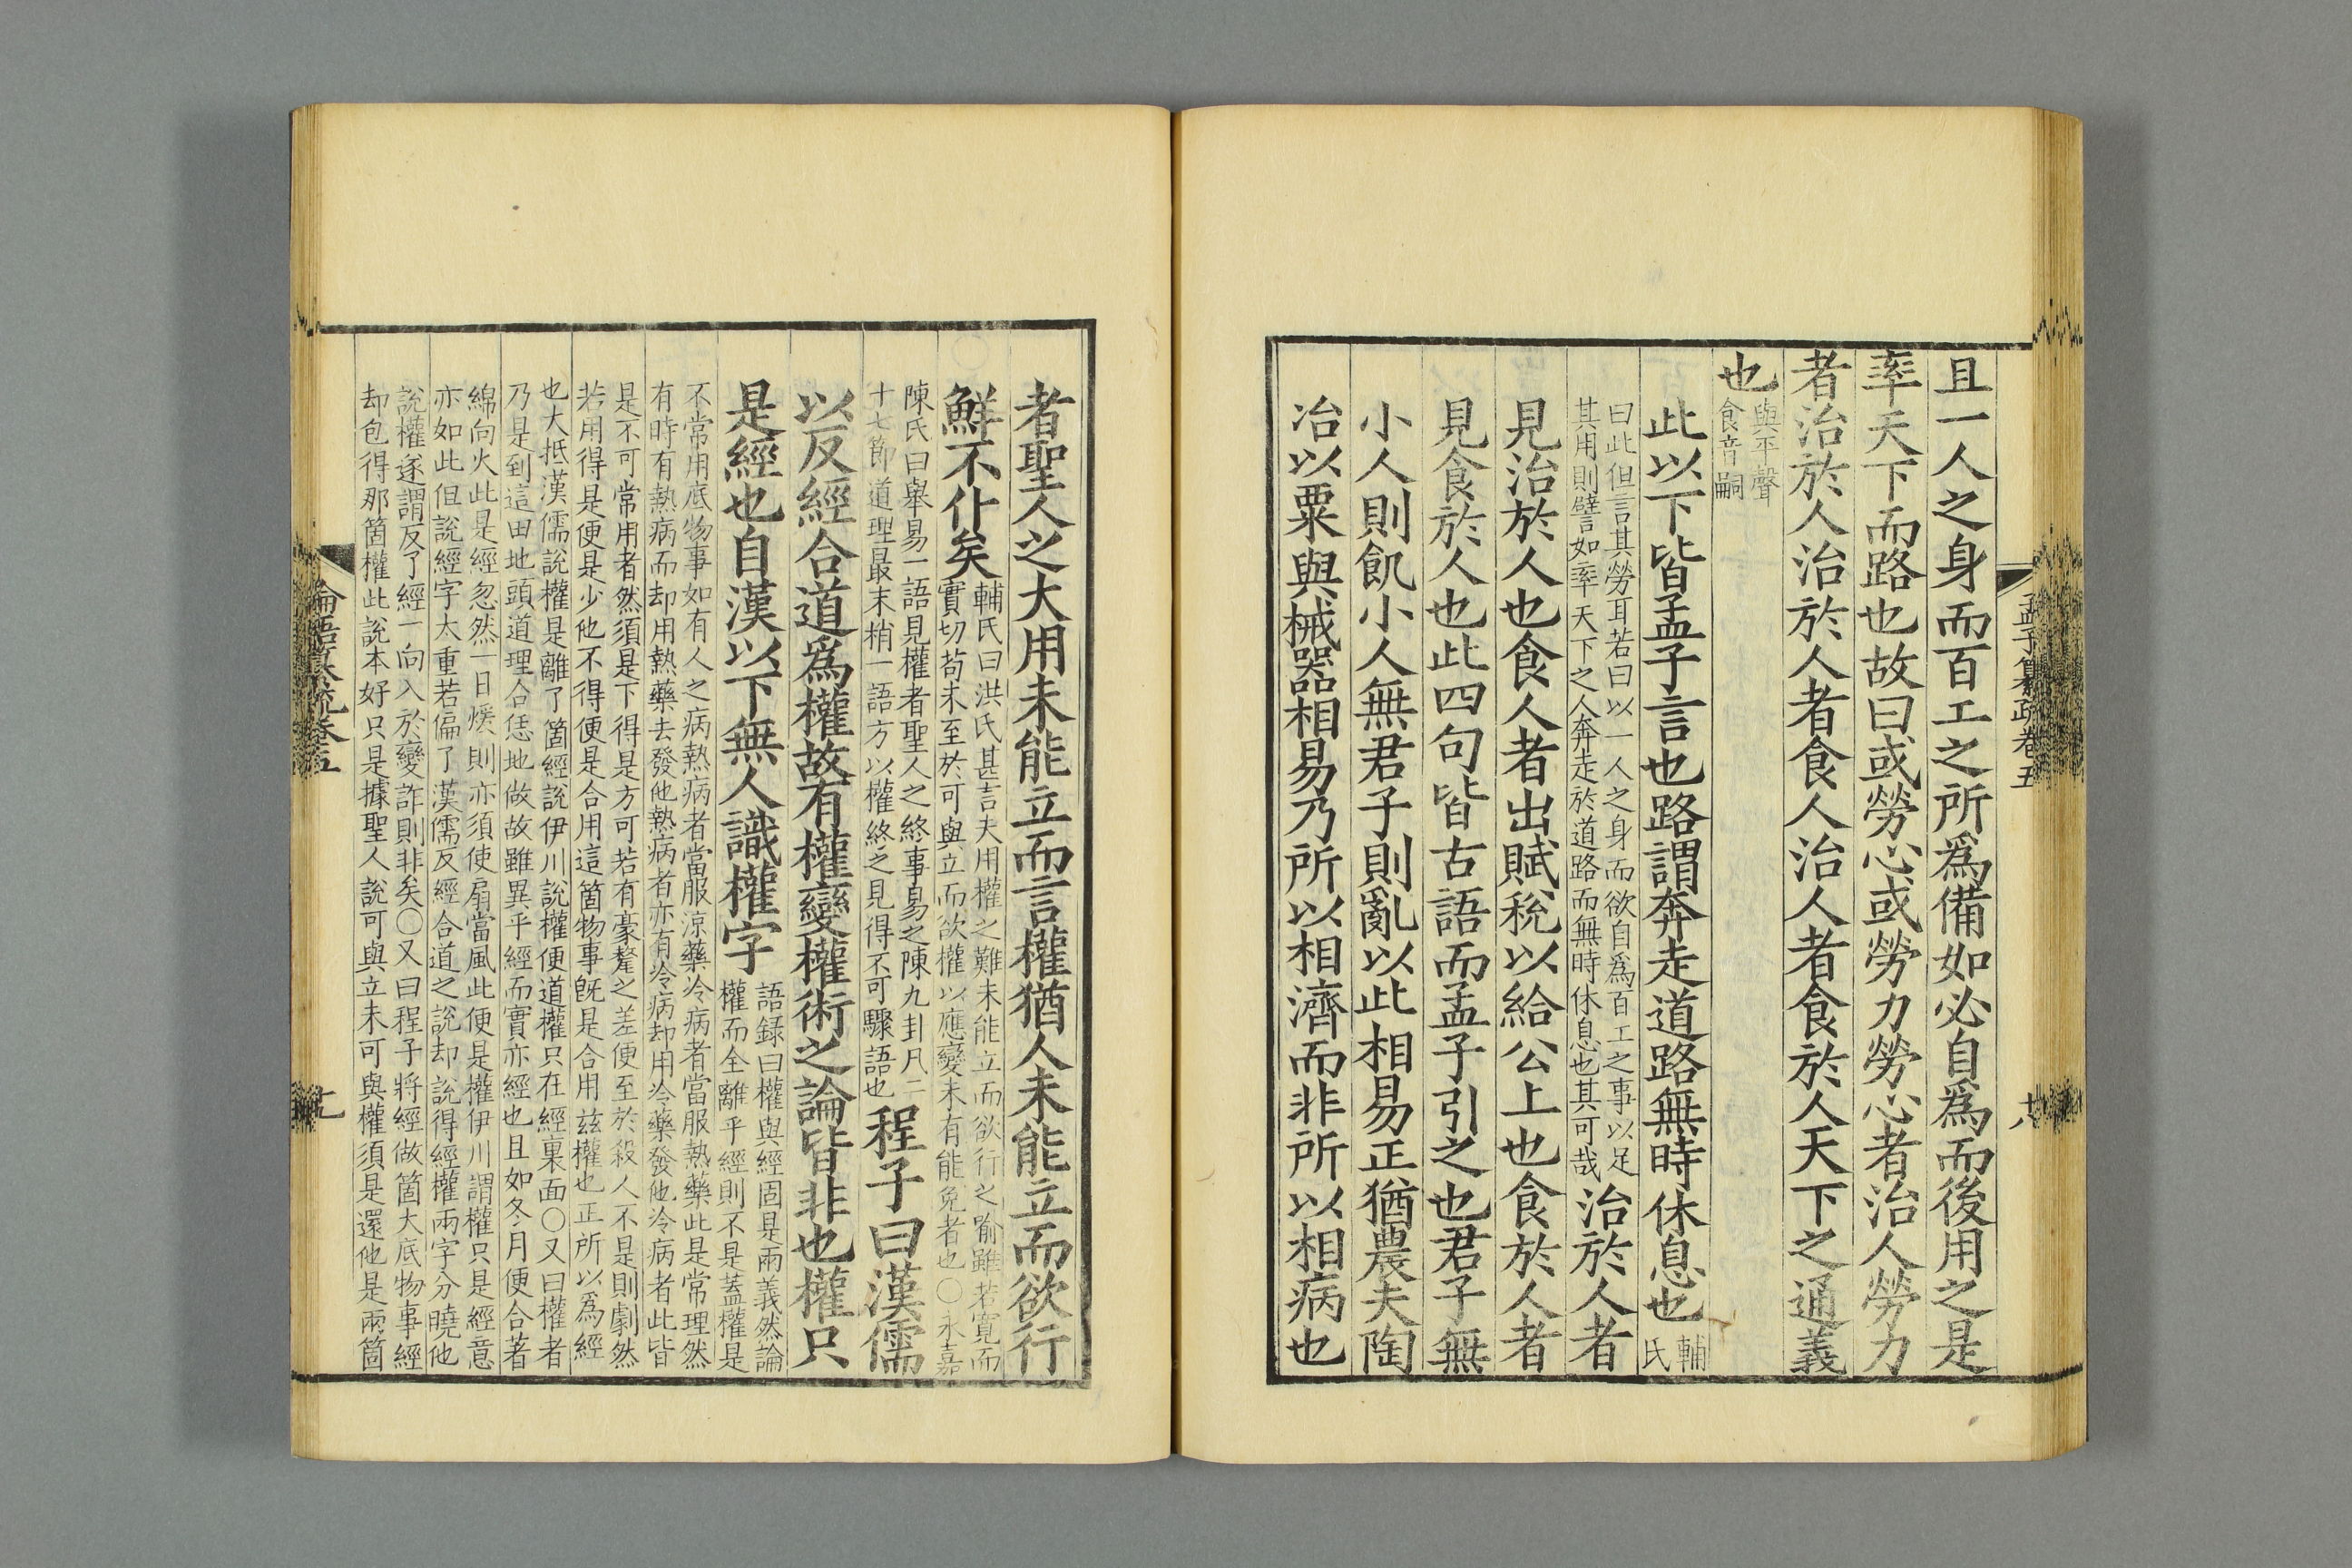 孟子纂疏卷五
十八
且一人之身而百工之所爲備如必自爲而後用之是
率天下而路也故曰或勞心或勞力勞心者治人勞力
者治於人治於人者食人治人者食於人天下之通義
也
與平聲
食音嗣
此以下皆孟子言也路謂奔走道路無時休息也
輔
氏
曰此但言其勞耳若曰以一人之身而欲自爲百工之事以足
其用則譬如率天下之人奔走於道路而無時休息也其可哉
治於人者
見治於人也食人者出賦稅以給公上也食於人者
見食於人也此四句皆古語而孟子引之也君子無
小人則飢小人無君子則亂以此相易正猶農夫陶
冶以粟與械器相易乃所以相濟而非所以相病也
者聖人之大用未能立而言權猶人未能立而欲行
鮮不仆矣
輔氏曰洪氏甚言夫用權之難未能立而欲行之喻雖若寬而
實切苟未至於可與立而欲權以應變未有能免者也○永嘉
陳氏曰舉易一語見權者聖人之終事易之陳九卦凡二
十七節道理最末梢一語方以權終之見得不可驟語也
程子曰漢儒
以反經合道爲權故有權變權術之論皆非也權只
是經也自漢以下無人識權字
語録曰權與經固是兩義然論
權而全離乎經則不是蓋權是
不常用底物事如有人之病熱病者當服涼藥冷病者當服熱藥此是常理然
有時有熱病而却用熱藥去發他熱病者亦有冷病却用冷藥發他冷病者此皆
是不可常用者然須是下得是方可若有毫釐之差便至於殺人不是則劇然
若用得是便是少他不得便是合用這箇物事旣是合用兹權也正所以為經
也大抵漢儒說權是離了箇經說伊川說權便道權只在經裏面○又曰權者
乃是到這田地頭道理合恁地做故雖異乎經而實亦經也且如冬月便合著
綿向火此是經忽然一日煖則亦須使扇當風此便是權伊川謂權只是經意
亦如此但說經字太重若偏了漢儒反經合道之說却說得經權兩字分曉他
說權遂謂反了經一向入於變詐則非矣○又曰程子將經做箇大底物事經
却包得那箇權此說本好只是據聖人說可與立未可與權須是還他是兩箇
論語纂疏卷五